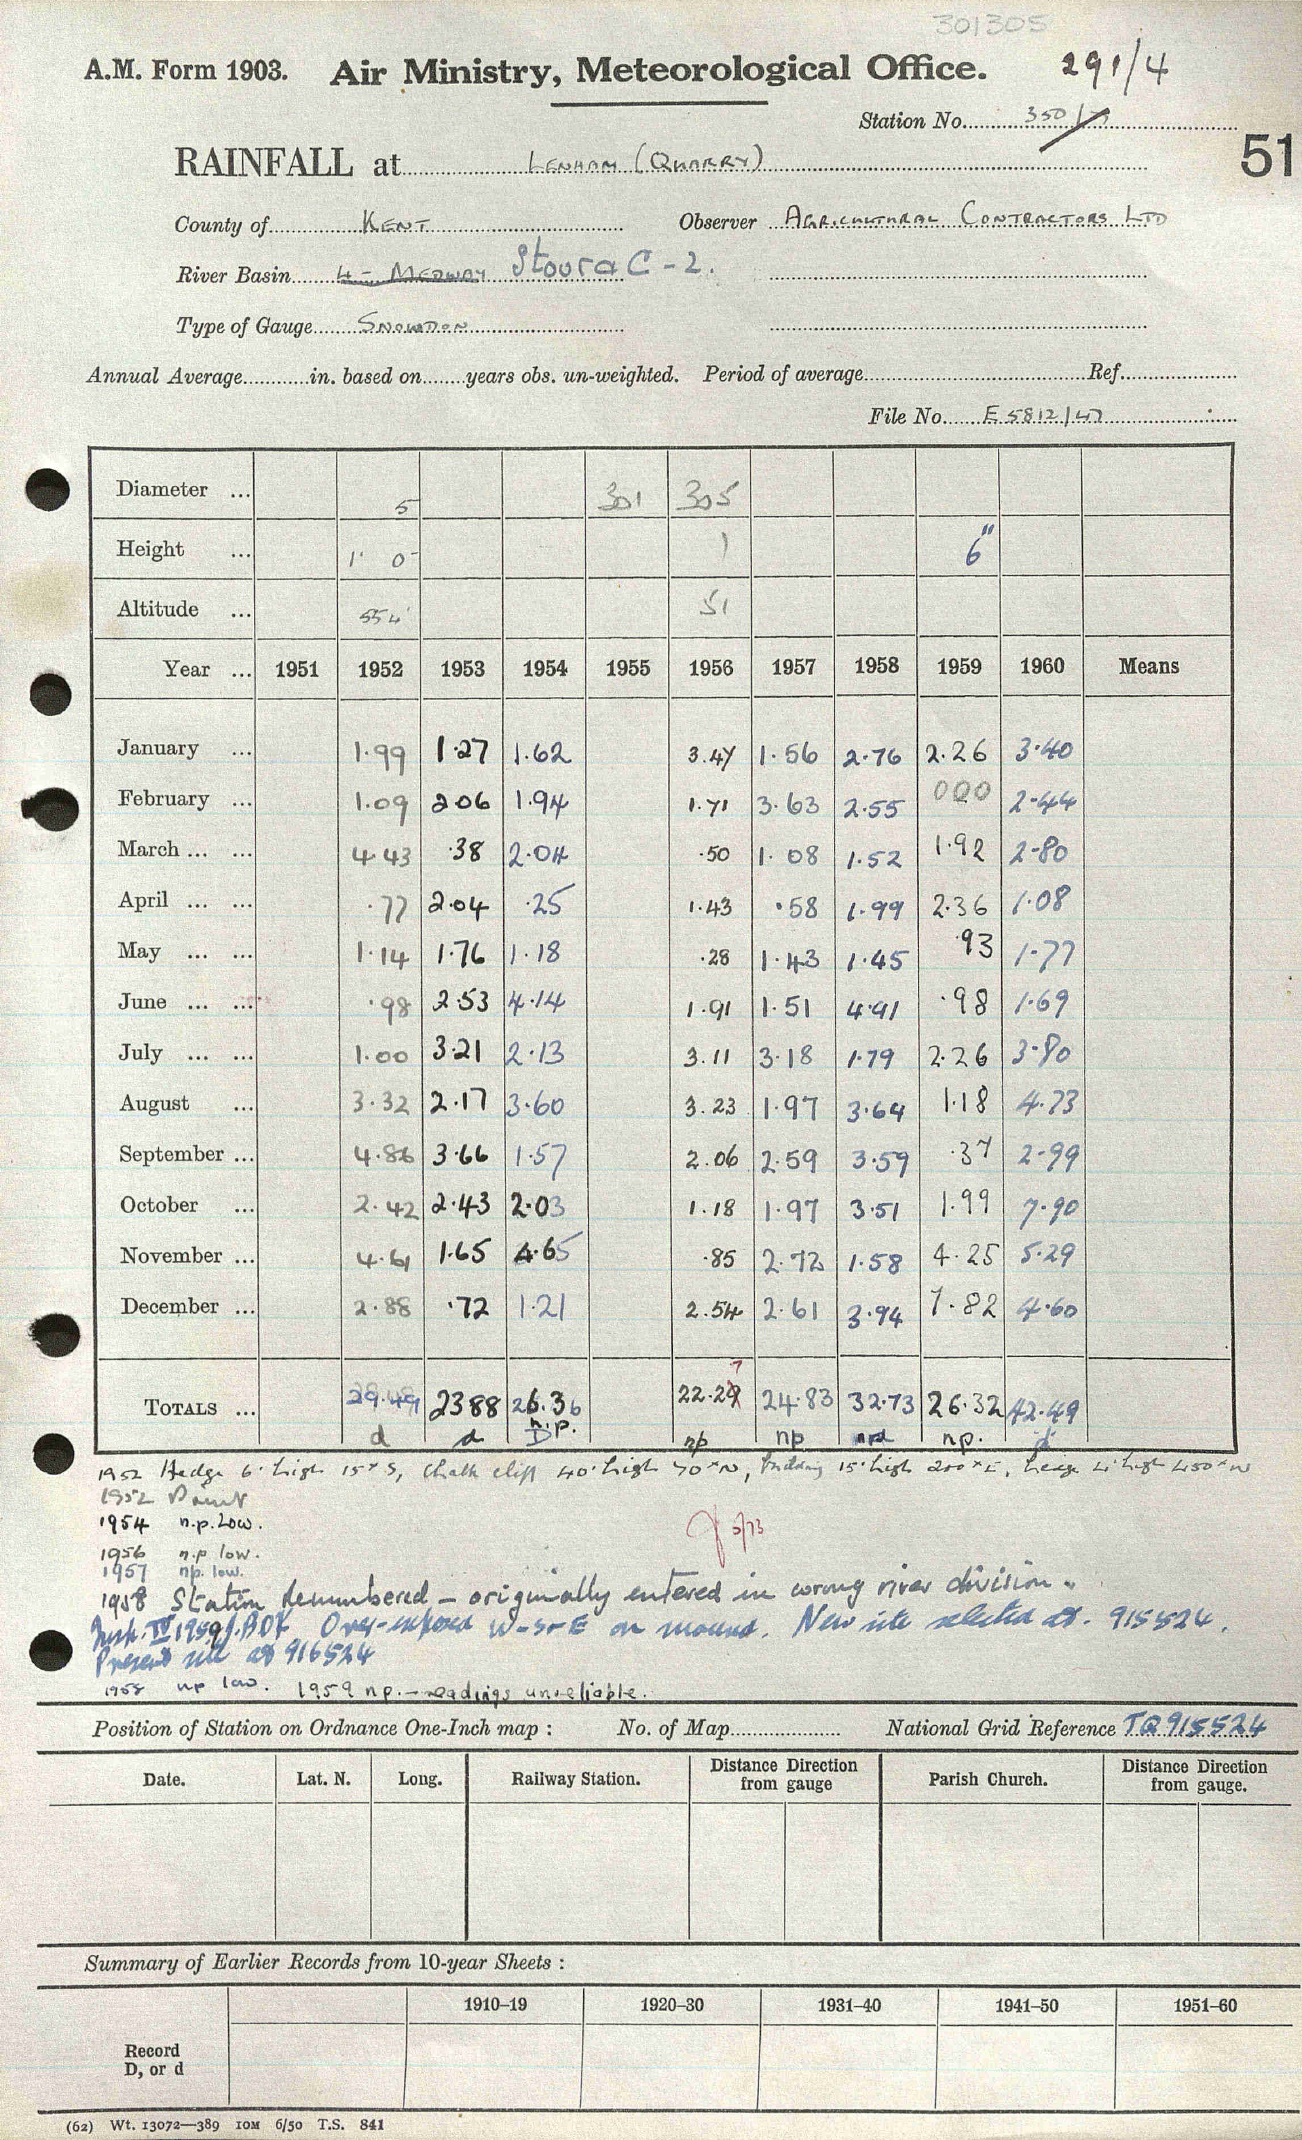 301305
A.M. Form 1903. Air Ministry, Meteorological Office. 291/4
Station No. 350/7
RAINFALL at LENHAM (QUARRY) 51
County of KENT Observer AGRICULTURAL CONTRACTORS LTD
River Basin 4 - MEDWAY Stour a C - 2.
Type of Gauge SNOWDON
Annual Average in. based on years obs. un-weighted. Period of average Ref.
File No. E5812/47
Diameter ... 5 301 305
Height ... 1' 0" 1 6"
Altitude ... 554' 51
Year ... 1951 1952 1953 1954 1955 1956 1957 1958 1959 1960 Means
January ... 1.99 1.27 1.62 3.47 1.56 2.76 2.26 3.40
February ... 1.09 2.06 1.94 1.71 3.63 2.55 000 2.44
March ... ... 4.43 .38 2.04 .50 1.08 1.52 1.92 2.80
April ... ... .77 2.04 .25 1.43 .58 1.99 2.36 1.08
May ... ... 1.14 1.76 1.18 .28 1.43 1.45 .93 1.77
June ... ... .98 2.53 4.14 1.91 1.51 4.41 .98 1.69
July ... ... 1.00 3.21 2.13 3.11 3.18 1.79 2.26 3.80
August ... 3.32 2.17 3.60 3.23 1.97 3.64 1.18 4.73
September ... 4.86 3.66 1.57 2.06 2.59 3.59 .37 2.99
October ... 2.42 2.43 2.03 1.18 1.97 3.51 1.99 7.90
November ... 4.61 1.65 4.65 .85 2.72 1.58 4.25 5.29
December ... 2.88 .72 1.21 2.54 2.61 3.94 7.82 4.60
7
TOTALS ... 29.49 23 88 26.36 22.29 24.83 32.73 26.32 42.49
d d n.p. D np np npd np. d
1952 Hedge 6' high 15x S, chalk cliff 40' high 70x N, building 15' high 200x E, hedge 4' high 450x W
1952
1954 n.p. low.
5/73
1956 n.p low.
1957 np. low.
1958 Station renumbered - originally entered in wrong river division.
Insp. IV 1959 Over-exposed W-S-E on mound. New site selected at 915524.
Present site at 916524
1958 np low. 1959 np. - readings unreliable.
Position of Station on Ordnance One-Inch map : No. of Map National Grid Reference TQ915524
Date. Lat. N. Long. Railway Station. Distance Direction from gauge Parish Church. Distance Direction from gauge.
Summary of Earlier Records from 10-year Sheets :
1910–19 1920–30 1931–40 1941–50 1951–60
Record
D, or d
(62) Wt. 13072—389 10M 6/50 T.S. 841